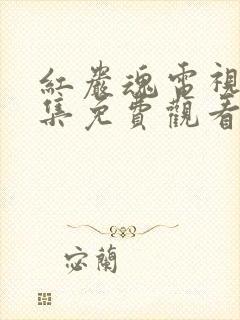 紅巖魂電視
集免費觀看
宓蘭